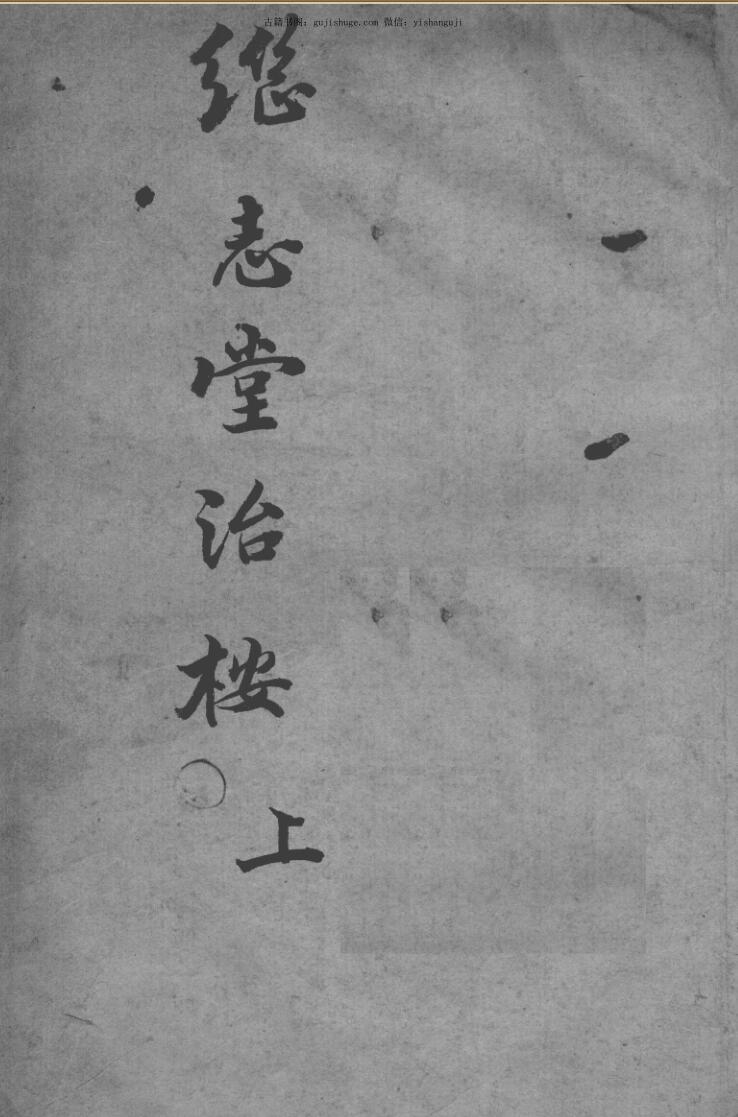 古籍书阁：gujishuge.com 微信：yishanguji
継志堂治桉
上